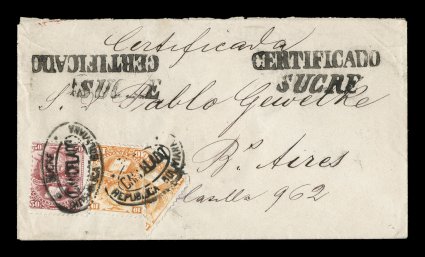 Certificada
CERTIFICADO
SUCRE
CERTIFICADO
SUCRE
S. D. Pablo Gewelke
Bs Aires
Casilla 962
50
50
REPUBLICA